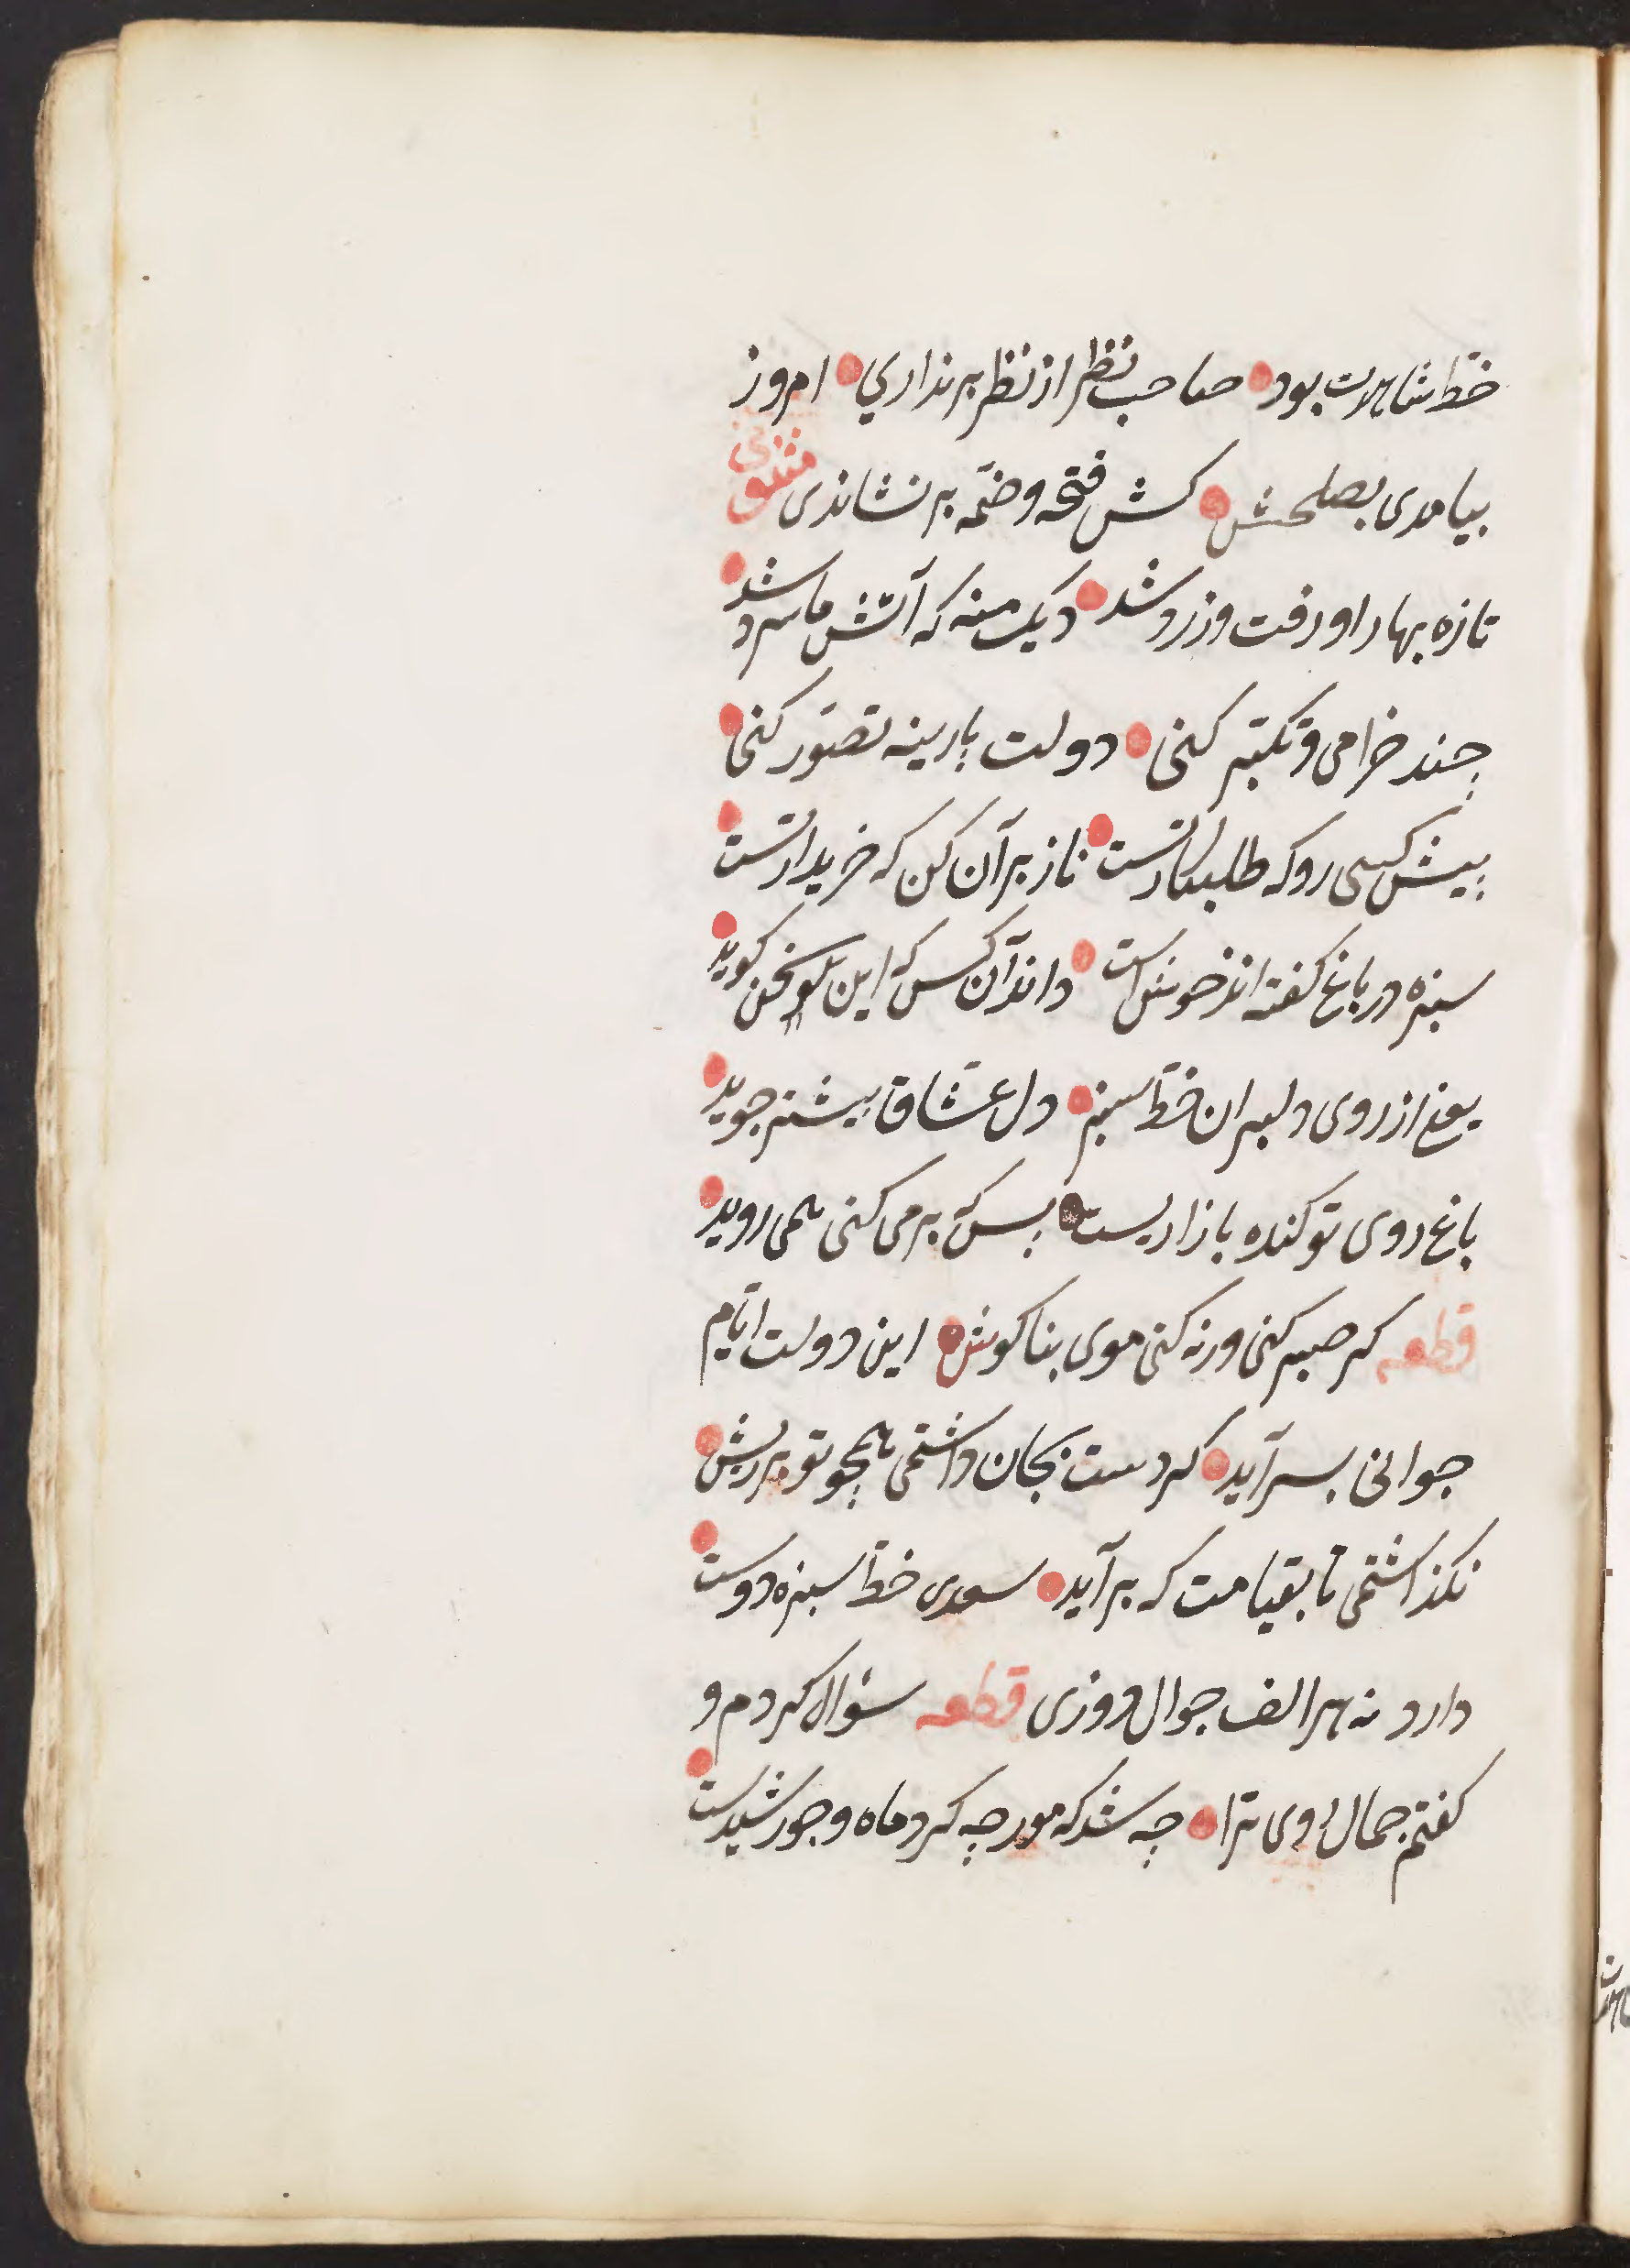 خط شاهدت بود صاحب نظر از نظر براندازي امروز
بیامدی بصلحش کش فتحه وضمّه بر نشاندی مثنوی
تازه بهارا ورقت زرد شد دیک منه که آتش ما سرد شد
چند خرامی و تکبّر کنی دولت پارینه تصوّر کنی
پیش کسی رو که طلبکار تست ناز بر آن کن که خریدار تست
سبزه در باغ کفته اند خوش است داند آن کس که این سخن کوید
یعنی از روی دلبران خط سبز دل عشّاق بیشتر جوید
باغ روی تو کنده بازاریست بس که بر می کنی همی روید
قطعه کر صبر کنی ور نه کنی موی بناکوش این دولت ایّام
جوانی بسر آید کر دست بجان داشتمی همچو تو بر ریش
نکذاشتمی تا بقیامت که بر آید سعدی خط سبزه دوست
دارد نه هر الف جوال دوزی قطعه سؤال کردم و
کفتم جمال روی ترا چه شد که مورچه کرد ماه جوشیدست